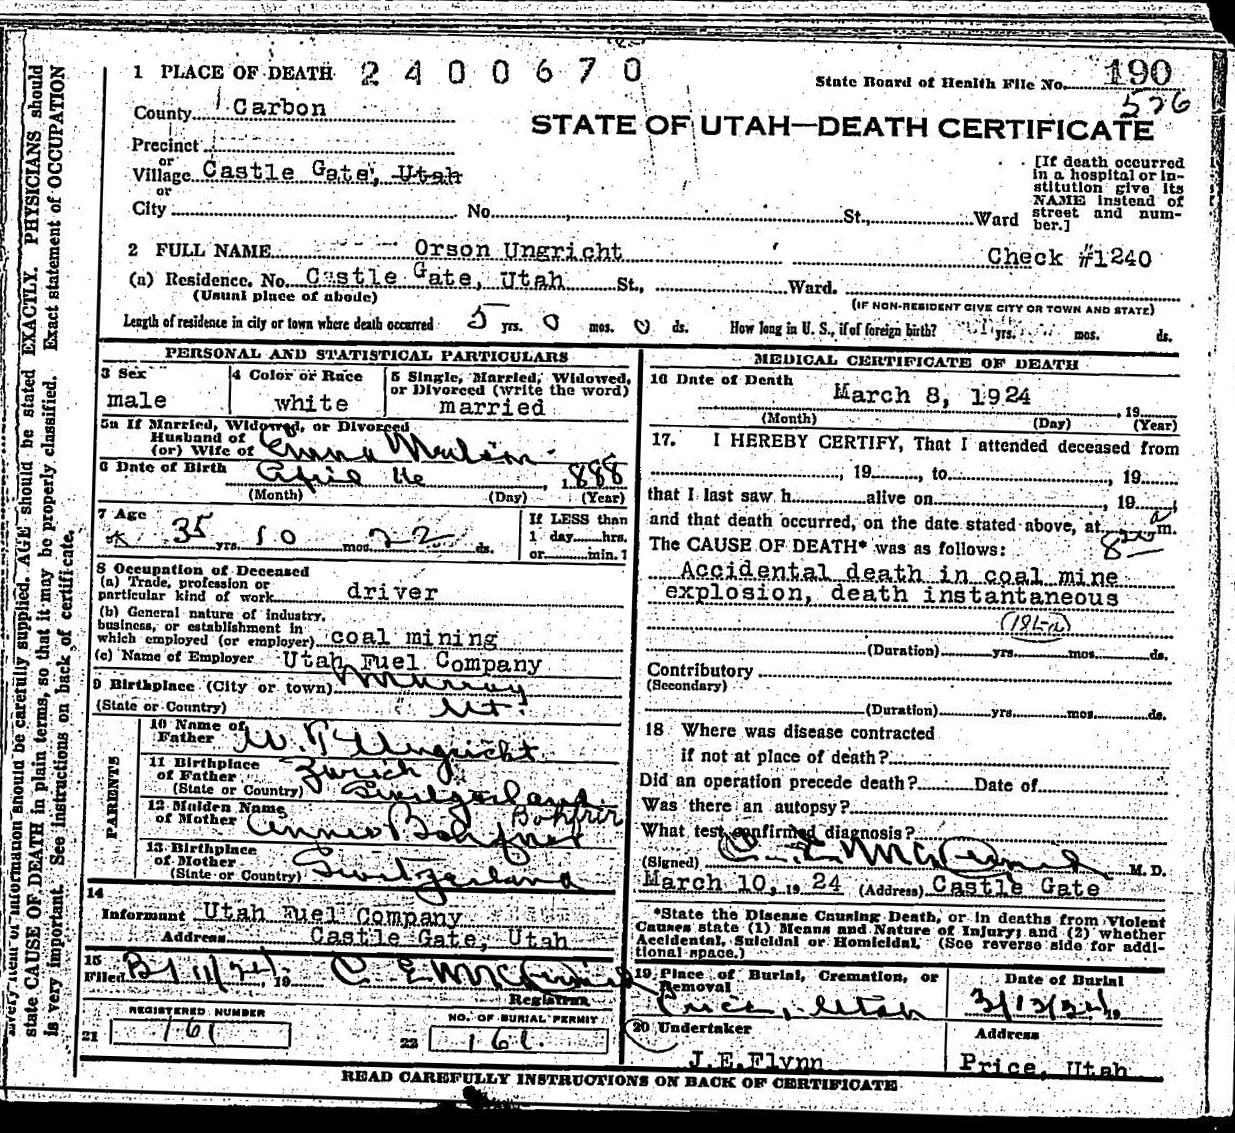 1 PLACE OF DEATH 2400670
State Board of Health File No. 190
576
County Carbon
STATE OF UTAH—DEATH CERTIFICATE
Precinct
or
Village Castle Gate, Utah
or
City No. St., Ward
[If death occurred
in a hospital or in-
stitution give its
NAME instead of
street and num-
ber.]
2 FULL NAME Orson Ungricht Check #1240
(a) Residence. No. Castle Gate, Utah St., Ward.
(Usual place of abode) (IF NON-RESIDENT GIVE CITY OR TOWN AND STATE)
Length of residence in city or town where death occurred 5 yrs. 0 mos. 0 ds. How long in U. S., if of foreign birth? yrs. mos. ds.
PERSONAL AND STATISTICAL PARTICULARS
3 Sex
male
4 Color or Race
white
5 Single, Married, Widowed,
or Divorced (write the word)
married
5a If Married, Widowed, or Divorced
Husband of
(or) Wife of Emma
6 Date of Birth April 16, 1888
(Month) (Day) (Year)
7 Age
35 yrs. 10 mos. 22 ds.
If LESS than
1 day hrs.
or min.
8 Occupation of Deceased
(a) Trade, profession or
particular kind of work driver
(b) General nature of industry,
business, or establishment in
which employed (or employer) coal mining
(c) Name of Employer Utah Fuel Company
9 Birthplace (City or town) Murray
(State or Country) Ut.
PARENTS
10 Name of
Father W. P. Ungricht
11 Birthplace
of Father Zurich
(State or Country) Switzerland
12 Maiden Name
of Mother Annie
13 Birthplace
of Mother
(State or Country) Switzerland
14
Informant Utah Fuel Company
Address Castle Gate, Utah
15
Filed 3/11/24, 19 C E McDermid
Registrar
REGISTERED NUMBER
21 161
NO. OF BURIAL PERMIT
22 161
MEDICAL CERTIFICATE OF DEATH
16 Date of Death March 8, 1924, 19
(Month) (Day) (Year)
17. I HEREBY CERTIFY, That I attended deceased from
, 19 , to , 19
that I last saw h alive on , 19 ,
and that death occurred, on the date stated above, at 8 a m.
The CAUSE OF DEATH* was as follows:
Accidental death in coal mine
explosion, death instantaneous
(Duration) yrs. mos. ds.
Contributory
(Secondary)
(Duration) yrs. mos. ds.
18 Where was disease contracted
if not at place of death?
Did an operation precede death? Date of
Was there an autopsy?
What test confirmed diagnosis?
(Signed) McDermid M. D.
March 10, 19 24 (Address) Castle Gate
*State the Disease Causing Death, or in deaths from Violent
Causes state (1) Means and Nature of Injury; and (2) whether
Accidental, Suicidal or Homicidal. (See reverse side for addi-
tional space.)
19 Place of Burial, Cremation, or
Removal
Price, Utah
Date of Burial
3/12/24, 19
20 Undertaker
J.E.Flynn
Address
Price, Utah
READ CAREFULLY INSTRUCTIONS ON BACK OF CERTIFICATE
every item of information should be carefully supplied. AGE should be stated EXACTLY. PHYSICIANS should
state CAUSE OF DEATH in plain terms, so that it may be properly classified. Exact statement of OCCUPATION
is very important. See instructions on back of certificate.